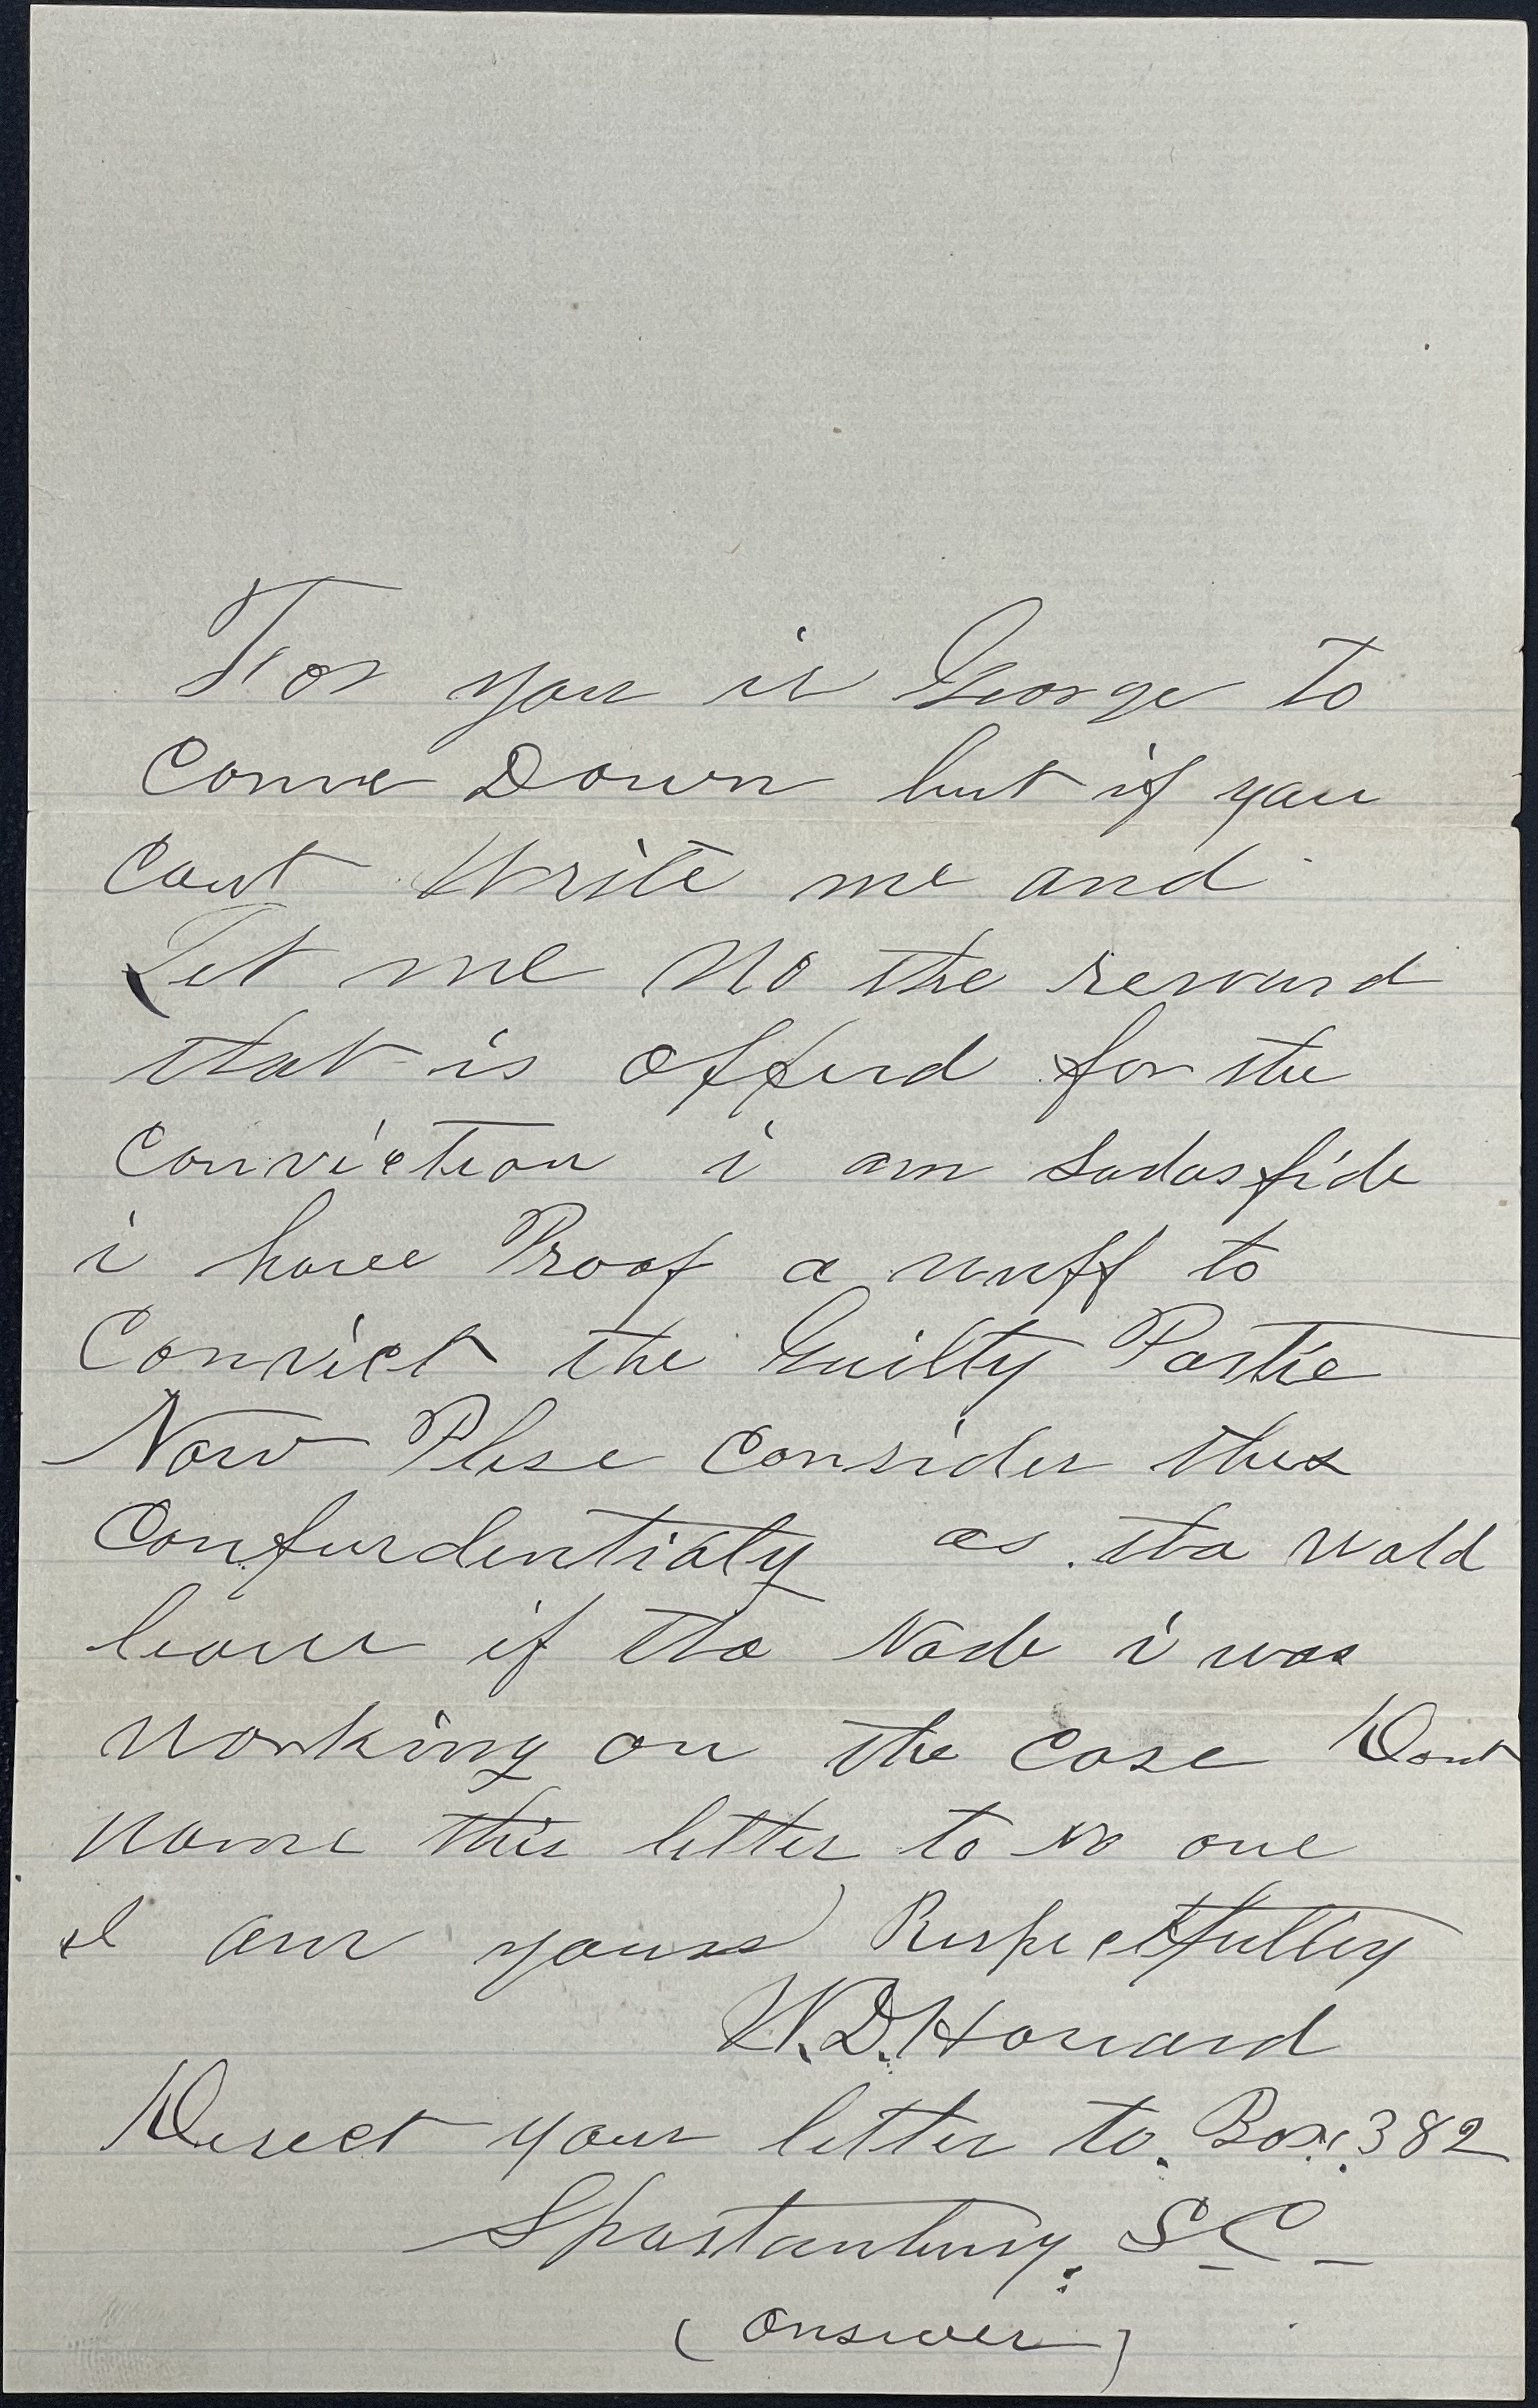 For you is George to
Come Down but if you
Cant Write me and
Let me No the reward
that is offerd for the
Conviction i am sadasfide
i have Proof a nuff to
Convict the Guilty Partie
Now Plese consider this
Confurdentialy as tha wold
leave if tha Node i was
working on the case Dont
name this letter to no one
I am yours Respectfulley
W.D. Howard
Derect your letter to. Box. 382
Spartanburg. S C
(answer)